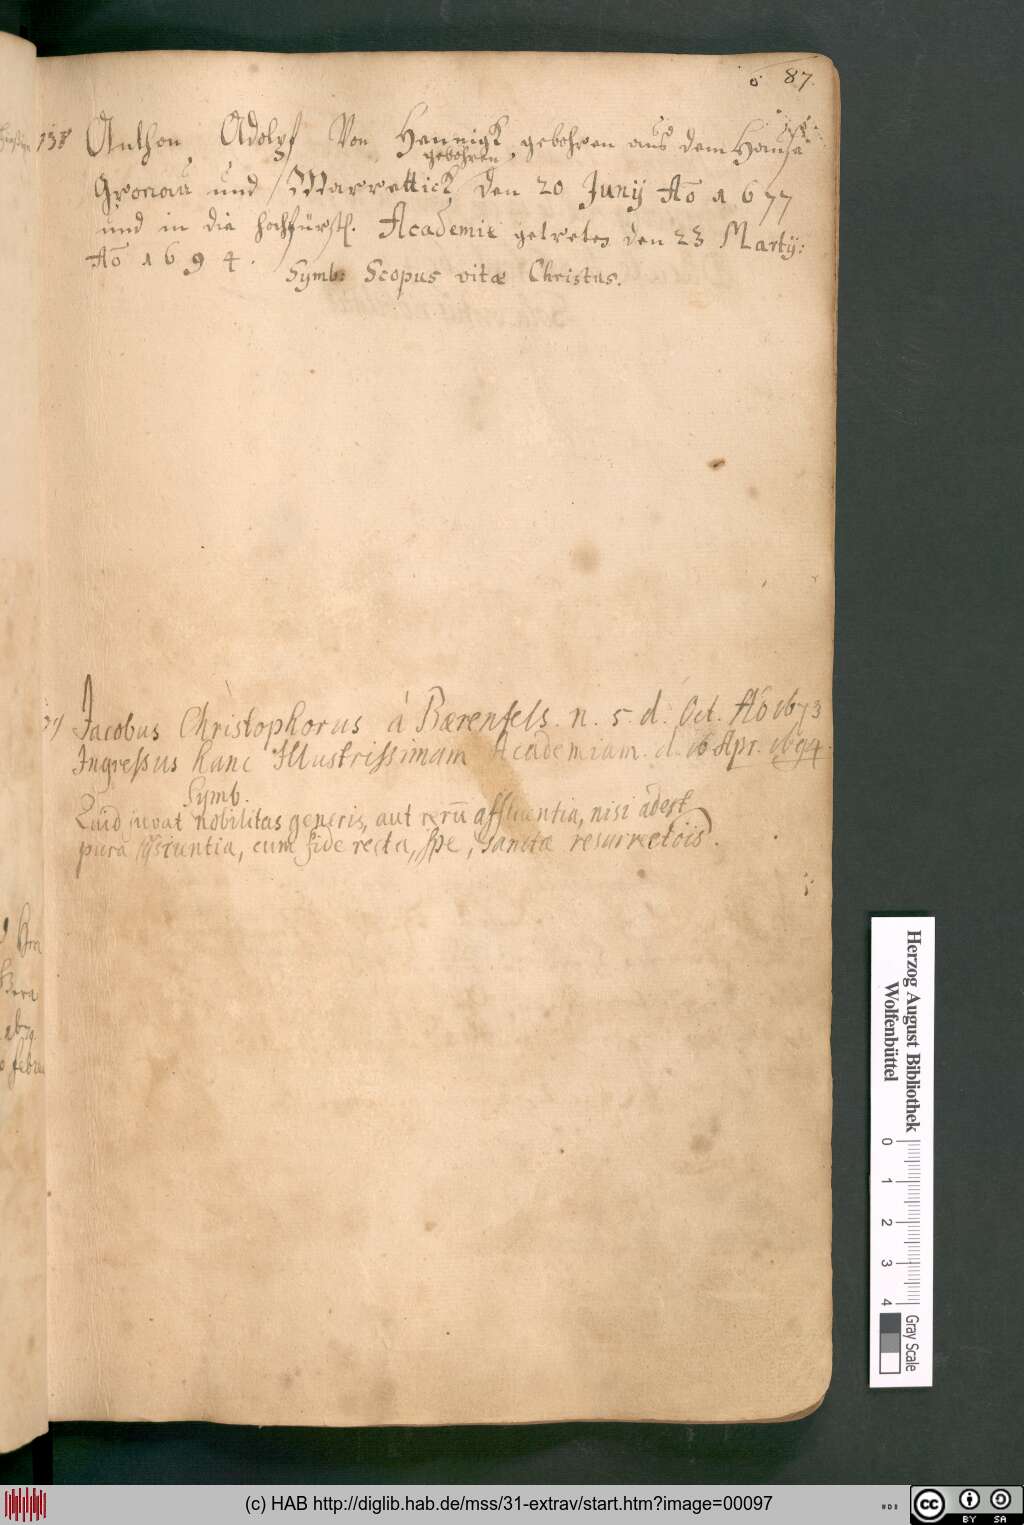 87.
138 Anthon Adolpf Von Hennigk gebohren aus dem Hause
gebohren
Gronau und Warrettick den 20 Junij Aõ 1677
und in die hochfürstl. Academie getreten den 23 Martij:
Aõ 1694.
Symb: Scopus vitæ Christus.
Jacobus Christophorus à Bærenfels. n. 5. d. Oct. Aó 1673
Ingressus hanc Illustrissimam Academiam. d. 16 Apr. 1694.
Symb.
Quid juvat nobilitas generis, aut rerū affluentia, nisi adest
pura conscientia, cum fide recta, spe, sanctæ resurrectõis.
Herzog August Bibliothek
Wolfenbüttel
0 1 2 3 4
Gray Scale
(c) HAB http://diglib.hab.de/mss/31-extrav/start.htm?image=00097
cc BY SA